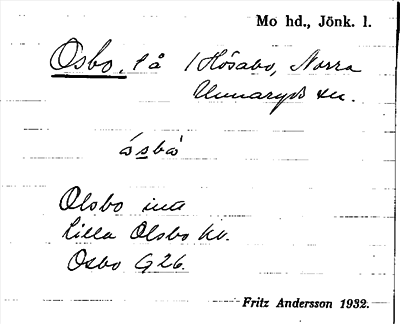 Mo hd., Jönk. l.
Osbo, l å / Hösabo, Norra
Unnaryds sn.
ósbó
Olsbo ina
Lilla Olsbo kv.
Osbo G26.
Fritz Andersson 1932.